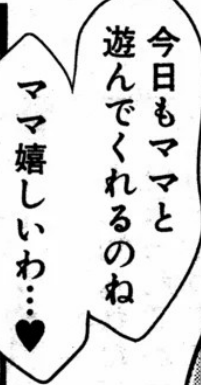 今日もママと
遊んでくれるのね
ママ嬉しいわ…♥